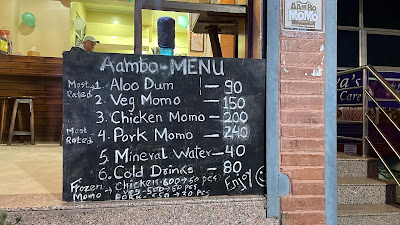 AAMBO
MOMO
Aambo-MENU
Most Rated 1. Aloo Dum — 90
2. Veg Momo — 150
3. Chicken Momo — 200
Most Rated 4. Pork Momo — 240
5. Mineral Water — 40
6. Cold Drinks — 80
Enjoy
Frozen Momo → Chicken - 600 → 50 pcs
→ Veg - 500 → 50 pcs
Pork
pcs
's
Care